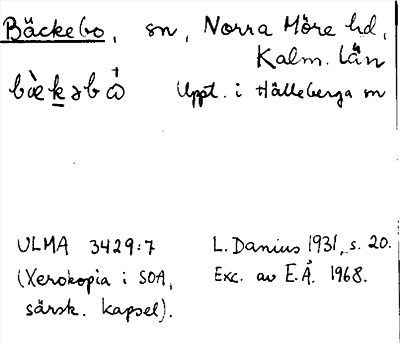 Bäckebo, sn, Norra Möre hd,
Kalm. län
Uppt. i Hälleberga sn
ULMA 3429:7 L. Danius 1931, s. 20.
(Xerokopia i SOA, Exc. av E.Å. 1968.
särsk. kapsel).